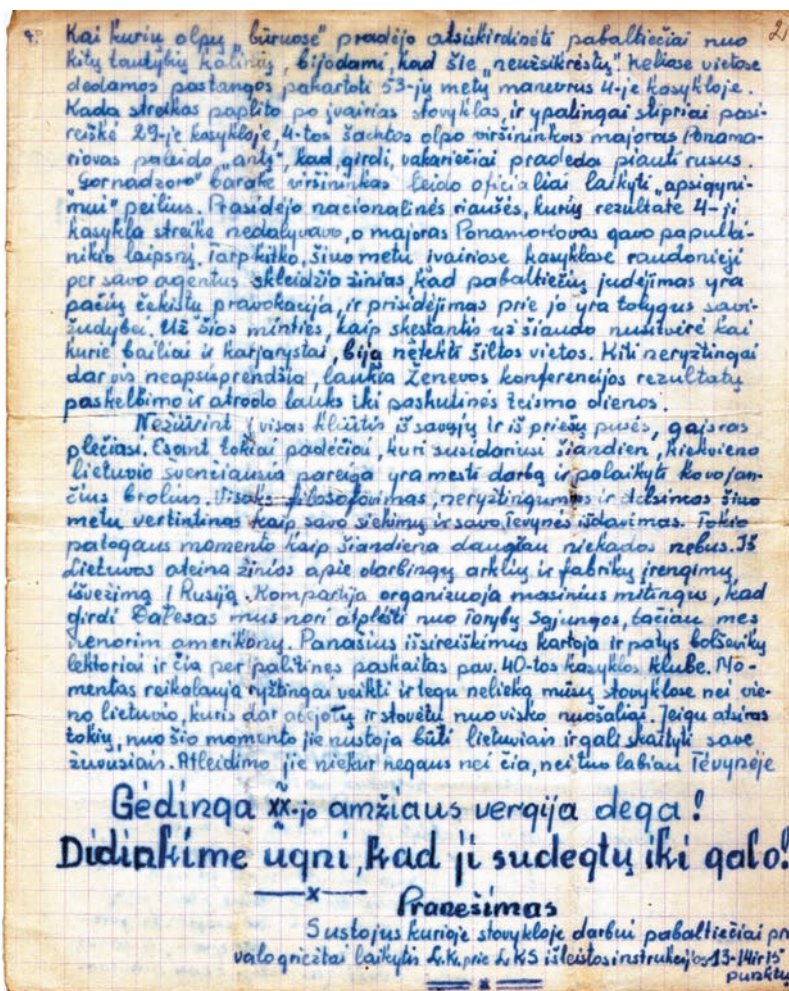 2
Kai kurių olpų „būruose" pradėjo atsiskirdinėti pabaltiečiai nuo
kitų tautybių kalinių, bijodami, kad šie „neužsikrėstų". Keliose vietose
dedamos pastangos pakartoti 53-jų metų manevrus 4-je kasykloje.
Kada streikas paplito po įvairias stovyklas, ir ypatingai stipriai pasi-
reiškė 29-je kasykloje, 4-tos šachtos olpo viršininkas majoras Ponama-
riovas paleido „antį", kad girdi, vakariečiai pradeda piauti rusus.
„Gornadzoro" barake viršininkas leido oficialiai laikyti „apsigyni-
mui" peilius. Prasidėjo nacionalinės riaušės, kurių rezultate 4-ji
kasykla streike nedalyvavo, o majoras Ponamoriovas gavo papulki-
nikio laipsnį. Tarp kitko, šiuo metu įvairiose kasyklose raudonieji
per savo agentus skleidžia žinias, kad pabaltiečių judėjimas yra
pačių čekistų pravokacija, ir prisidėjimas prie jo yra tolygus savi-
žudybei. Už šios minties, kaip skęstantis už šiaudo nusitvėrė kai
kurie bailiai ir karjarystai, biją netekti šiltos vietos. Kiti neryžtingai
dar vis neapsisprendžia, laukia Ženevos konferencijos rezultatų
paskelbimo ir atrodo lauks iki paskutinės teismo dienos.
Nežiūrint į visas kliūtis iš savųjų ir iš priešų pusės, gaisras
plečiasi. Esant tokiai padėčiai, kuri susidariusi šiandien, kiekvieno
lietuvio švenčiausia pareiga yra mesti darbą ir palaikyti kovojan-
čius brolius. Visoks filosofavimas, neryžtingumas ir delsimas šiuo
metu vertintinas kaip savo siekimų ir savo Tėvynės išdavimas. Tokio
patogaus momento kaip šiandiena daugiau niekados nebus. Iš
Lietuvos ateina žinios apie darbingų arklių ir fabrikų įrengimų
išvežimą į Rusiją. Kompartija organizuoja masinius mitingus, kad
girdi Dalesas mus nori atplėšti nuo Tarybų Sąjungos, tačiau mes
nenorim amerikonų. Panašius išsireiškimus kartoja ir patys bolševikų
lektoriai ir čia per politines paskaitas pav. 40-tos kasyklos klube. Mo-
mentas reikalauja ryžtingai veikti ir tegu nelieka mūsų stovyklose nei vie-
no lietuvio, kuris dar abejotų ir stovėtų nuo visko nuošaliai. Jeigu atsiras
tokių, nuo šio momento jie nustoja būti lietuviais ir gali skaityti save
žuvusiais. Atleidimo jie niekur negaus nei čia, nei tuo labiau Tėvynėje
Gėdinga XX-jo amžiaus vergija dega!
Didinkime ugnį, kad ji sudegtų iki galo!
x
Pranešimas
Sustojus kurioje stovykloje darbui pabaltiečiai pri
valo griežtai laikytis L.K. prie LKS išleistos instrukcijos 13-14 ir 15
punktų
x